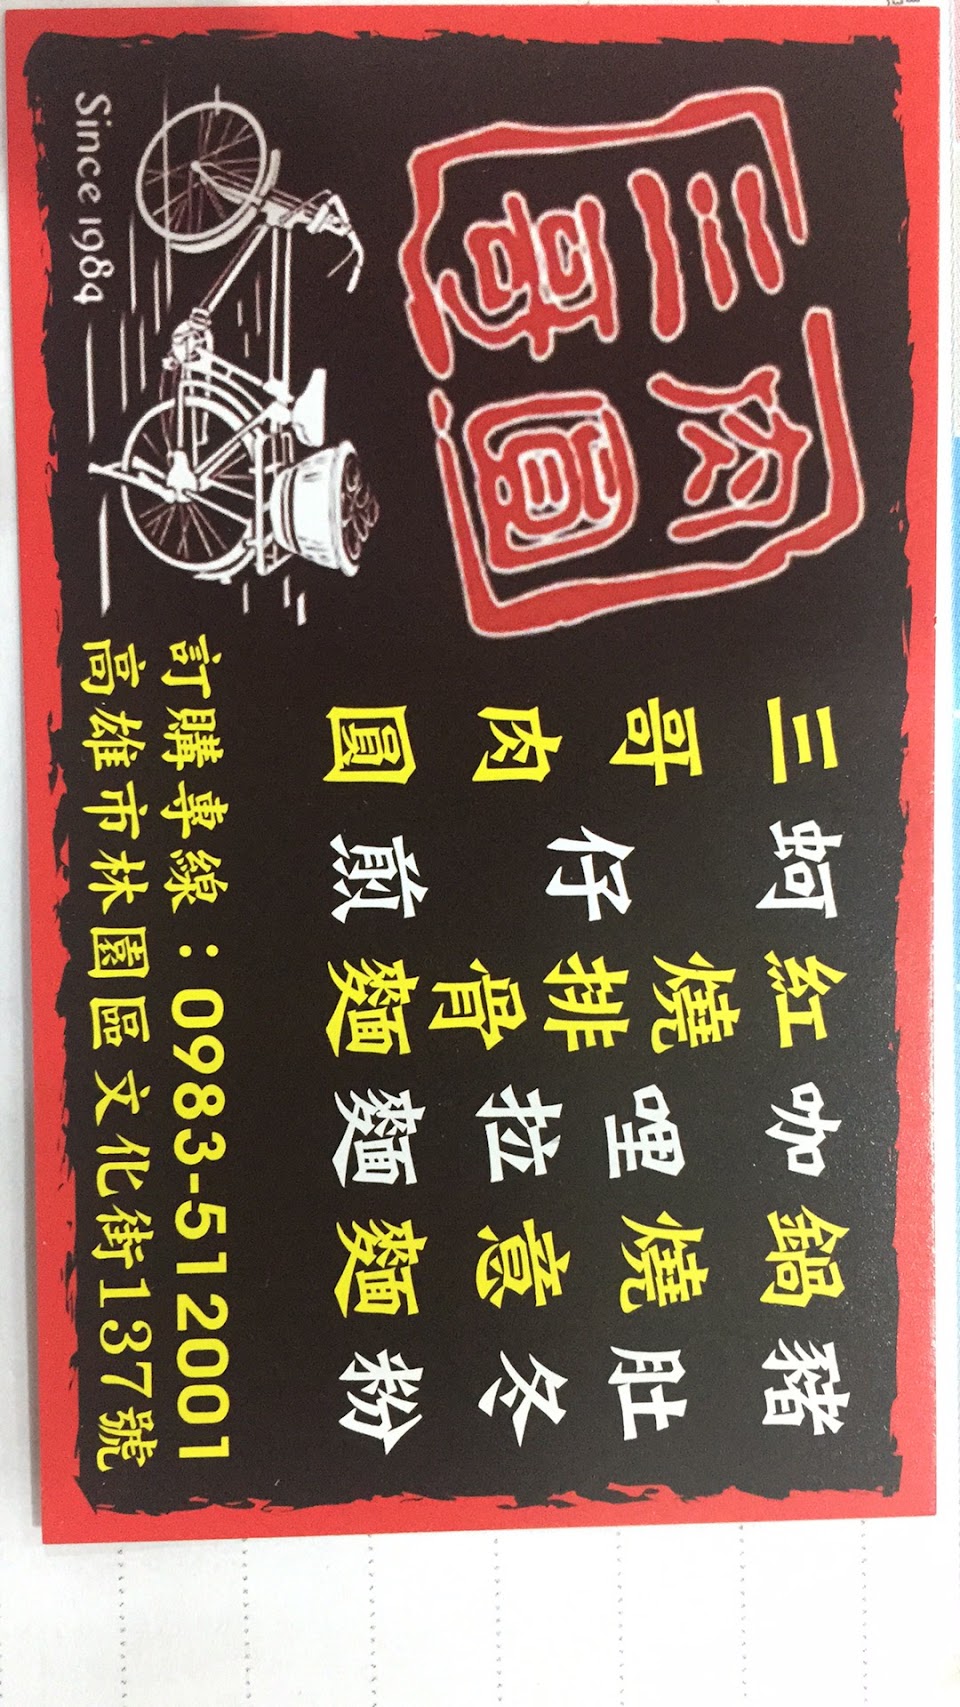 三哥
肉圓
Since 1984
三哥肉圓
蚵仔煎
紅燒排骨麵
咖哩拉麵
鍋燒意麵
豬肚冬粉
訂購專線：0983-512001
高雄市林園區文化街137號